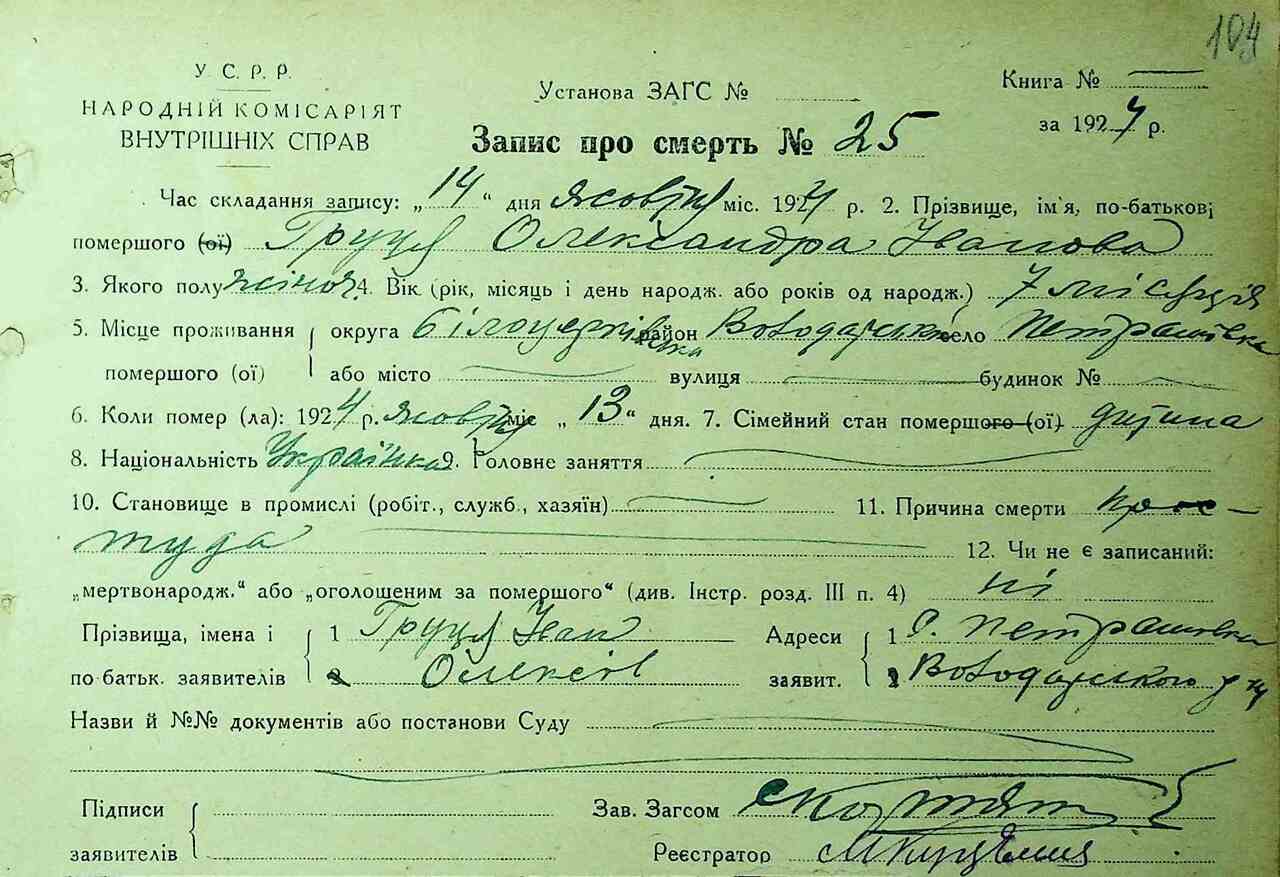 104
У С. Р. Р.
НАРОДНІЙ КОМІСАРІЯТ
ВНУТРІШНІХ СПРАВ
Установа ЗАГС №
Книга №
за 1924 р.
Запис про смерть № 25
Час складання запису: „14“ дня міс. 1924 р. 2. Прізвище, ім'я, по-батькові
помершого (ої) Груця Олександра Іванова
3. Якого полу жіноч. 4. Вік (рік, місяць і день народж. або років од народж.) 7 місяців
5. Місце проживання округа Білоцерківська район село Петрашівка
помершого (ої) або місто вулиця будинок №
6. Коли помер (ла): 1924 р. міс „13“ дня. 7. Сімейний стан помершого (ої) дитина
8. Національність Українка 9. Головне заняття
10. Становище в промислі (робіт., служб., хазяїн) 11. Причина смерти прос-
туда 12. Чи не є записаний:
„мертвонародж.“ або „оголошеним за помершого“ (див. Інстр. розд. III п. 4) ні
Прізвища, імена і 1 Груця Іван Адреси 1 С. Петрашівка
по батьк. заявителів 2 Олексів заявит. 2 Володарського р-ну
Назви й №№ документів або постанови Суду
Підписи Зав. Загсом
заявителів Реєстратор